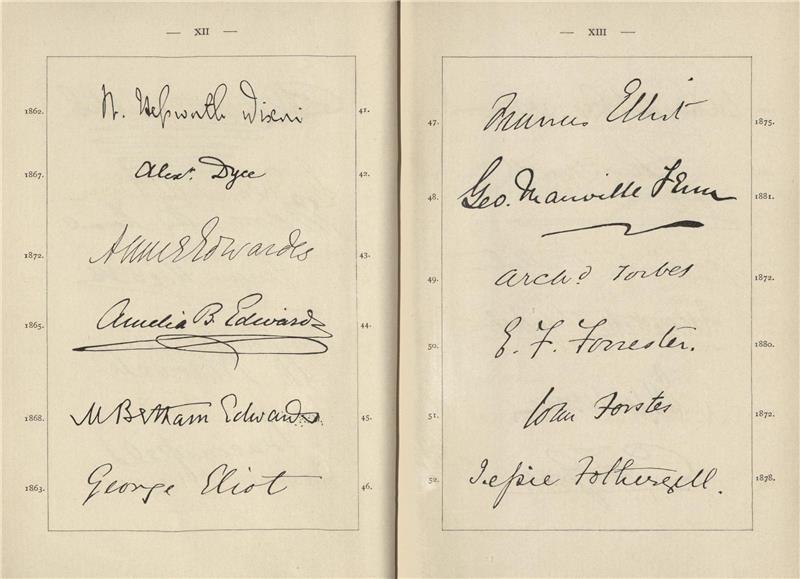 — XII —
1862. W. Hepworth Dixon 41.
1867. Alexr. Dyce 42.
1872. Annie Edwardes 43.
1865. Amelia B. Edwards 44.
1868. M Betham Edwards 45.
1863. George Eliot 46.
— XIII —
47. Frances Elliot 1875.
48. Geo. Manville Fenn 1881.
49. Archd Forbes 1872.
50. E. F. Forrester. 1880.
51. John Forster 1872.
52. Jessie Fothergill. 1878.